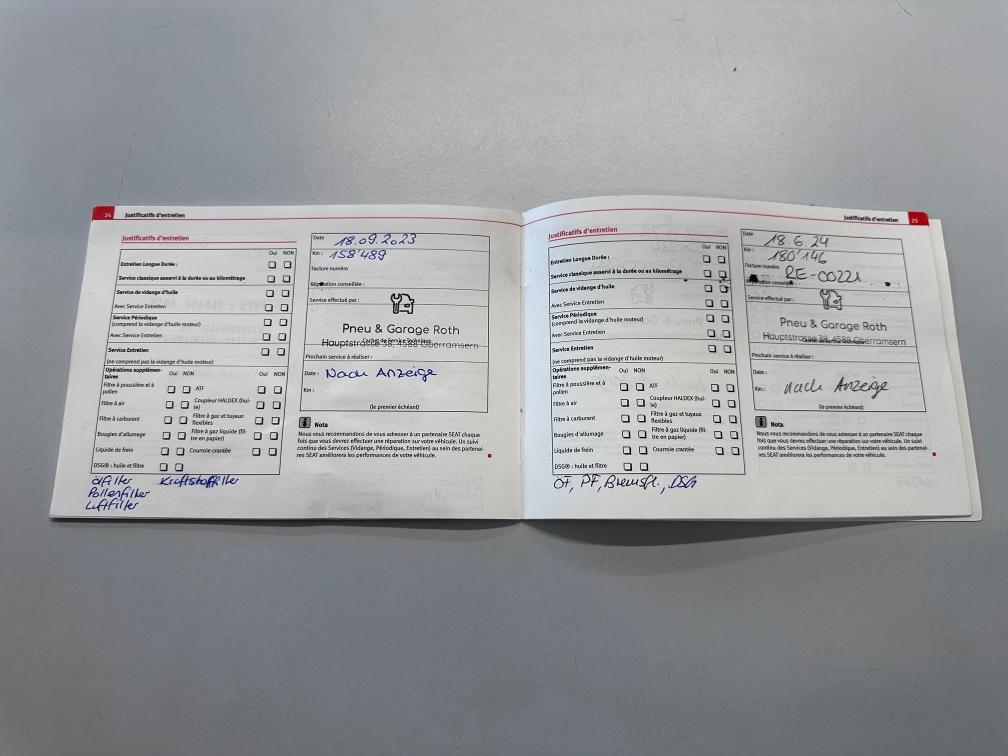 24 Justificatifs d'entretien
Justificatifs d'entretien
Oui NON
Entretien Longue Durée :
Service classique asservi à la durée ou au kilométrage
Service de vidange d'huile
Avec Service Entretien
Service Périodique
(comprend la vidange d'huile moteur)
Avec Service Entretien
Service Entretien
(ne comprend pas la vidange d'huile moteur)
Opérations supplémen-
taires
Oui NON Oui NON
Filtre à poussière et à
pollen
ATF
Filtre à air
Coupleur HALDEX (hui-
le)
Filtre à carburant
Filtre à gaz et tuyaux
flexibles
Bougies d'allumage
Filtre à gaz liquide (fil-
tre en papier)
Liquide de frein
Courroie crantée
DSG® : huile et filtre
Ölfilter Kraftstofffilter
Pollenfilter
Luftfilter
Date 18.09.2023
Km : 158'489
Facture numéro
Réparation conseillée :
Service effectué par :
Pneu & Garage Roth
Cachet du Service Technique
Hauptstrasse 38, 4588 Oberramsern
Prochain service à réaliser :
Date : Nach Anzeige
Km :
(le premier échéant)
Nota
Nous vous recommandons de vous adresser à un partenaire SEAT chaque
fois que vous devrez effectuer une réparation sur votre véhicule. Un suivi
continu des Services (Vidange, Périodique, Entretien) au sein des partenai-
res SEAT améliorera les performances de votre véhicule.
Justificatifs d'entretien 25
Justificatifs d'entretien
Oui NON
Entretien Longue Durée :
Service classique asservi à la durée ou au kilométrage
Service de vidange d'huile
Avec Service Entretien
Service Périodique
(comprend la vidange d'huile moteur)
Avec Service Entretien
Service Entretien
(ne comprend pas la vidange d'huile moteur)
Opérations supplémen-
taires
Oui NON Oui NON
Filtre à poussière et à
pollen
ATF
Filtre à air
Coupleur HALDEX (hui-
le)
Filtre à carburant
Filtre à gaz et tuyaux
flexibles
Bougies d'allumage
Filtre à gaz liquide (fil-
tre en papier)
Liquide de frein
Courroie crantée
DSG® : huile et filtre
ÖF, PF, Bremsfl., DSG
Date : 18.6.24
Km : 180'146
Facture numéro RE-00221
Réparation conseillée :
Service effectué par :
Pneu & Garage Roth
Hauptstrasse 38, 4588 Oberramsern
Prochain service à réaliser :
Date :
Km : nach Anzeige
(le premier échéant)
Nota
Nous vous recommandons de vous adresser à un partenaire SEAT chaque
fois que vous devrez effectuer une réparation sur votre véhicule. Un suivi
continu des Services (Vidange, Périodique, Entretien) au sein des partenai-
res SEAT améliorera les performances de votre véhicule.